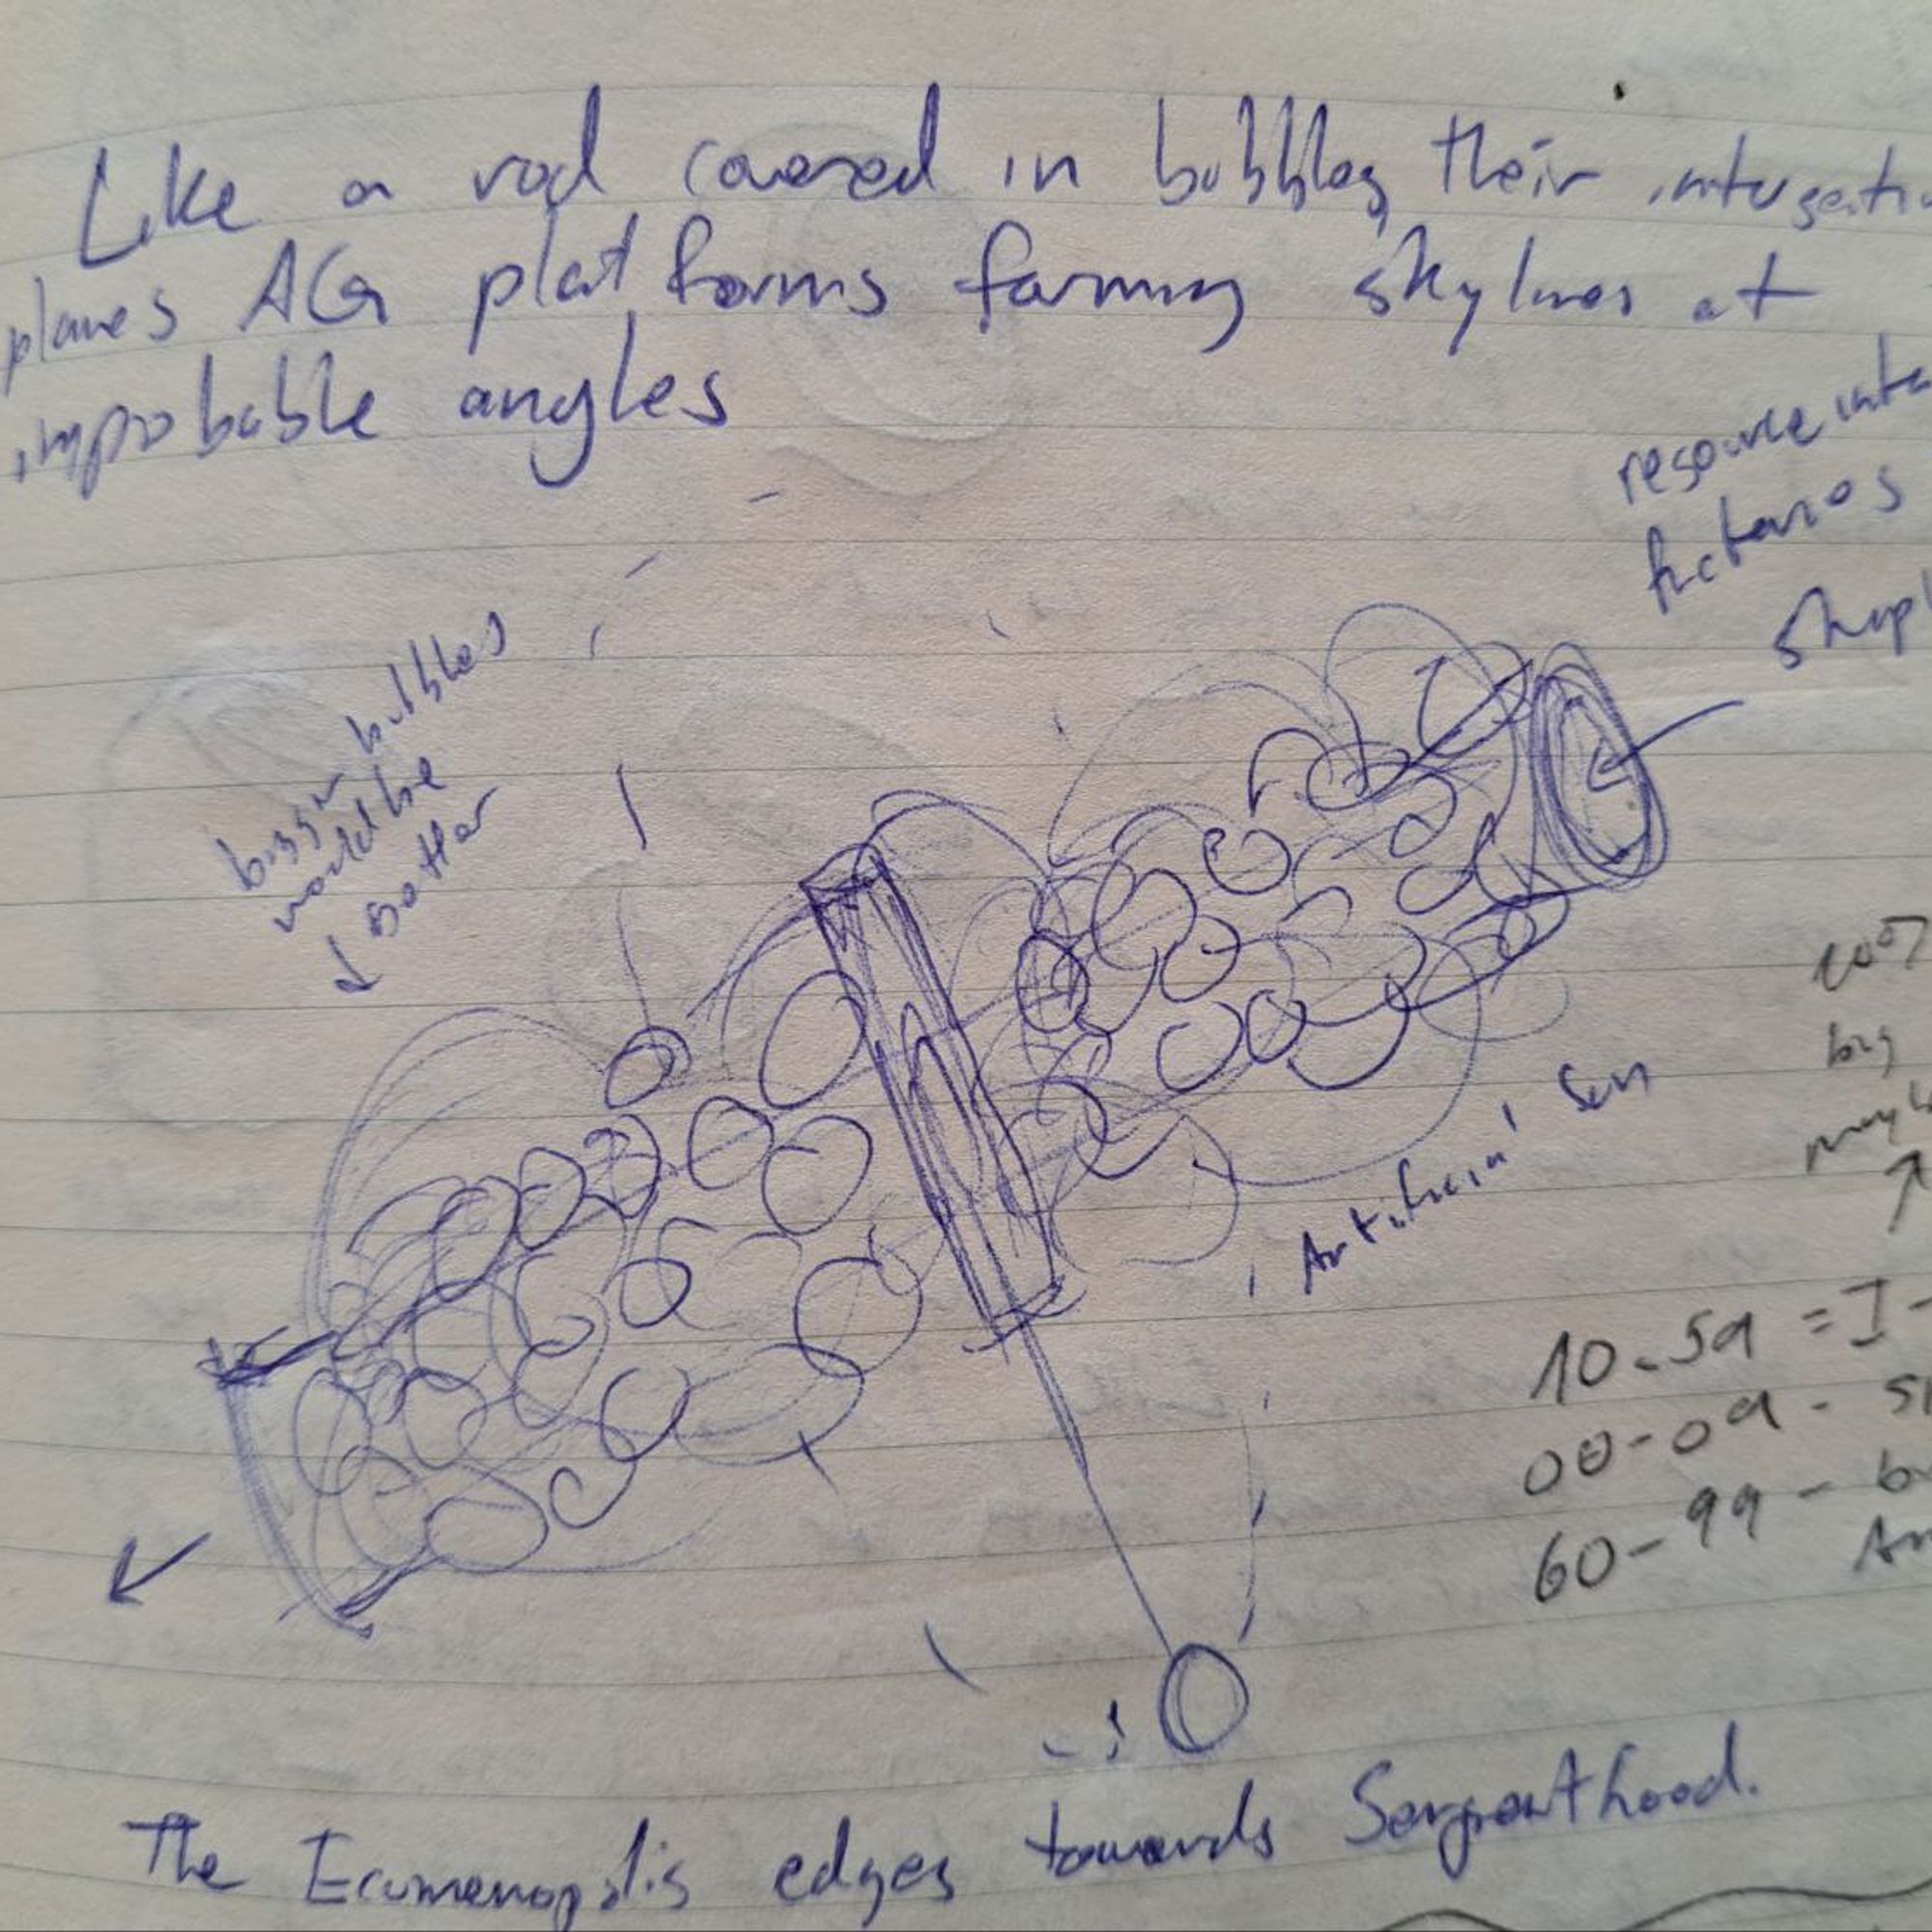 Like a rod covered in bubbles their
planes AG platforms forming skylines at
improbable angles
resource
factories
bubbles
would be
better
big
Artificial Sun
10-59 = I
00-09 -
60-99 -
The Ecumenopolis edges towards Serpenthood.